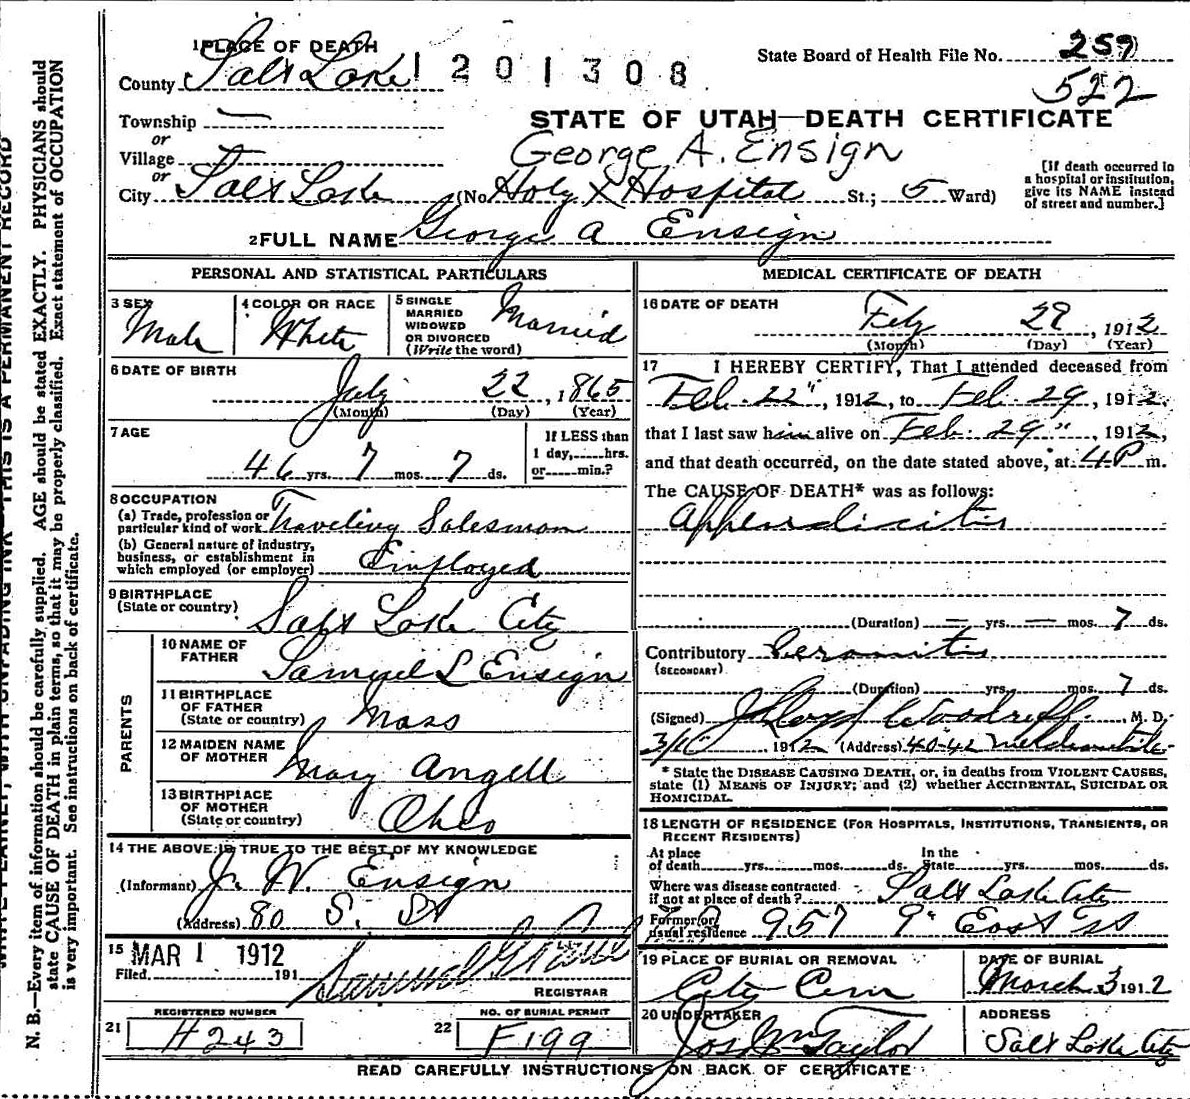 1 PLACE OF DEATH
County Salt Lake 1201308
State Board of Health File No. 259
522
Township —
or
Village
or
STATE OF UTAH—DEATH CERTIFICATE
George A. Ensign
City Salt Lake (No. Holy X Hospital St.; 5 Ward)
[If death occurred in a hospital or institution, give its NAME instead of street and number.]
2 FULL NAME George A Ensign
PERSONAL AND STATISTICAL PARTICULARS
3 SEX Male
4 COLOR OR RACE White
5 SINGLE MARRIED WIDOWED OR DIVORCED (Write the word) Married
6 DATE OF BIRTH
July 22, 1865
(Month) (Day) (Year)
7 AGE
46 yrs. 7 mos. 7 ds.
If LESS than 1 day,......hrs. or......min.?
8 OCCUPATION
(a) Trade, profession or particular kind of work Traveling Salesman
(b) General nature of industry, business, or establishment in which employed (or employer) Employed
9 BIRTHPLACE
(State or country) Salt Lake City
PARENTS
10 NAME OF FATHER Samuel L Ensign
11 BIRTHPLACE OF FATHER (State or country) Mass
12 MAIDEN NAME OF MOTHER Mary Angell
13 BIRTHPLACE OF MOTHER (State or country) Ohio
14 THE ABOVE IS TRUE TO THE BEST OF MY KNOWLEDGE
(Informant) J. W. Ensign
(Address) 80 S. St
15 MAR 1 1912
Filed 191
REGISTRAR
REGISTERED NUMBER
21 H243
NO. OF BURIAL PERMIT
22 F199
MEDICAL CERTIFICATE OF DEATH
16 DATE OF DEATH
Feby 29, 1912
(Month) (Day) (Year)
17 I HEREBY CERTIFY, That I attended deceased from
Feb. 22", 1912, to Feb. 29, 1912,
that I last saw him alive on Feb. 29", 1912,
and that death occurred, on the date stated above, at 4P m.
The CAUSE OF DEATH* was as follows:
Appendicitis
(Duration) — yrs. — mos. 7 ds.
Contributory
(SECONDARY)
(Duration) yrs. mos. 7 ds.
(Signed) J Lloyd Woodruff, M. D.
1912 (Address) 40-42 Mercantile
* State the DISEASE CAUSING DEATH, or, in deaths from VIOLENT CAUSES, state (1) MEANS OF INJURY; and (2) whether ACCIDENTAL, SUICIDAL OR HOMICIDAL.
18 LENGTH OF RESIDENCE (FOR HOSPITALS, INSTITUTIONS, TRANSIENTS, OR RECENT RESIDENTS)
At place of death yrs. mos. ds. In the State yrs. mos. ds.
Where was disease contracted if not at place of death? Salt Lake City
Former or usual residence 957 9" East
19 PLACE OF BURIAL OR REMOVAL
City Cem
DATE OF BURIAL
March 3 1912
20 UNDERTAKER
Jos Wm Taylor
ADDRESS
Salt Lake City
READ CAREFULLY INSTRUCTIONS ON BACK OF CERTIFICATE
WRITE PLAINLY, WITH UNFADING INK—THIS IS A PERMANENT RECORD
N. B.—Every item of information should be carefully supplied. AGE should be stated EXACTLY. PHYSICIANS should
state CAUSE OF DEATH in plain terms, so that it may be properly classified. Exact statement of OCCUPATION
is very important. See instructions on back of certificate.